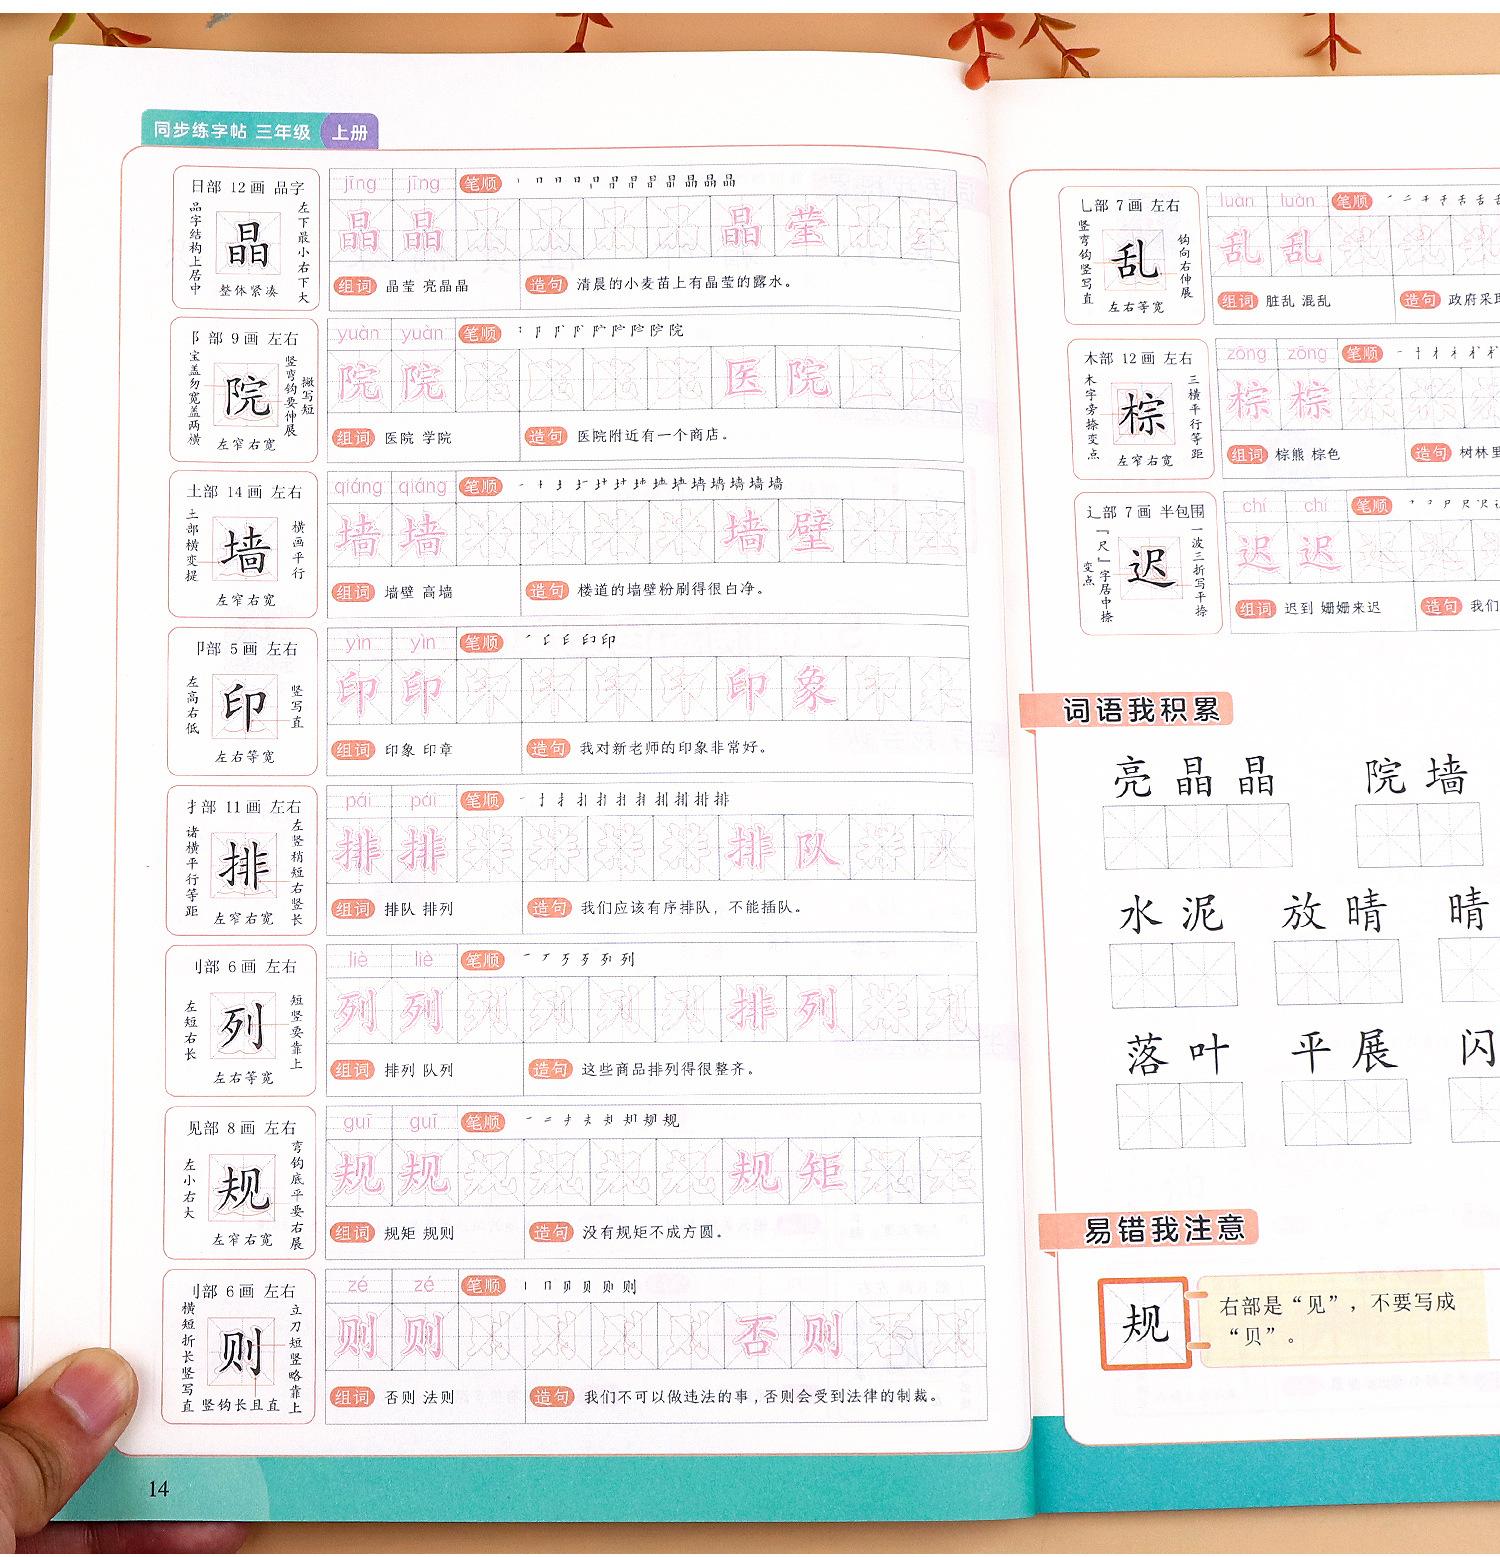 同步练字帖 三年级 上册
日部 12画 品字
品字结构上居中
晶
左下最小右下大
整体紧凑
jīng jīng 笔顺
晶 晶 晶 莹
组词 晶莹 亮晶晶 造句 清晨的小麦苗上有晶莹的露水。
阝部 9画 左右
宝盖勿宽盖两横
院
竖弯钩要伸展
撇写短
左窄右宽
yuàn yuàn 笔顺
院 院 医 院
组词 医院 学院 造句 医院附近有一个商店。
土部 14画 左右
土部横变提
墙
横画平行
左窄右宽
qiáng qiáng 笔顺
墙 墙 墙 壁
组词 墙壁 高墙 造句 楼道的墙壁粉刷得很白净。
卩部 5画 左右
左高右低
印
竖写直
左右等宽
yìn yìn 笔顺
印 印 印 象
组词 印象 印章 造句 我对新老师的印象非常好。
扌部 11画 左右
诸横平行等距
排
左竖稍短右竖长
左窄右宽
pái pái 笔顺
排 排 排 队
组词 排队 排列 造句 我们应该有序排队，不能插队。
刂部 6画 左右
左短右长
列
短竖要靠上
左右等宽
liè liè 笔顺
列 列 排 列
组词 排列 队列 造句 这些商品排列得很整齐。
见部 8画 左右
左小右大
规
弯钩底平要右展
左窄右宽
guī guī 笔顺
规 规 规 矩
组词 规矩 规则 造句 没有规矩不成方圆。
刂部 6画 左右
横短折长竖写直
则
立刀短竖略靠上
竖钩长且直
zé zé 笔顺
则 则 否 则
组词 否则 法则 造句 我们不可以做违法的事，否则会受到法律的制裁。
14
乚部 7画 左右
竖弯钩竖写直
乱
钩向右伸展
左右等宽
luàn luàn 笔顺
乱 乱
组词 脏乱 混乱 造句 政府采取
木部 12画 左右
木字旁捺变点
棕
三横平行等距
左窄右宽
zōng zōng 笔顺
棕 棕
组词 棕熊 棕色 造句 树林里
辶部 7画 半包围
“尺”字居中捺变点
迟
一波三折写平捺
chí chí 笔顺
迟 迟
组词 迟到 姗姗来迟 造句 我们
词语我积累
亮晶晶 院墙
水泥 放晴 晴
落叶 平展 闪
易错我注意
规
右部是“见”，不要写成
“贝”。